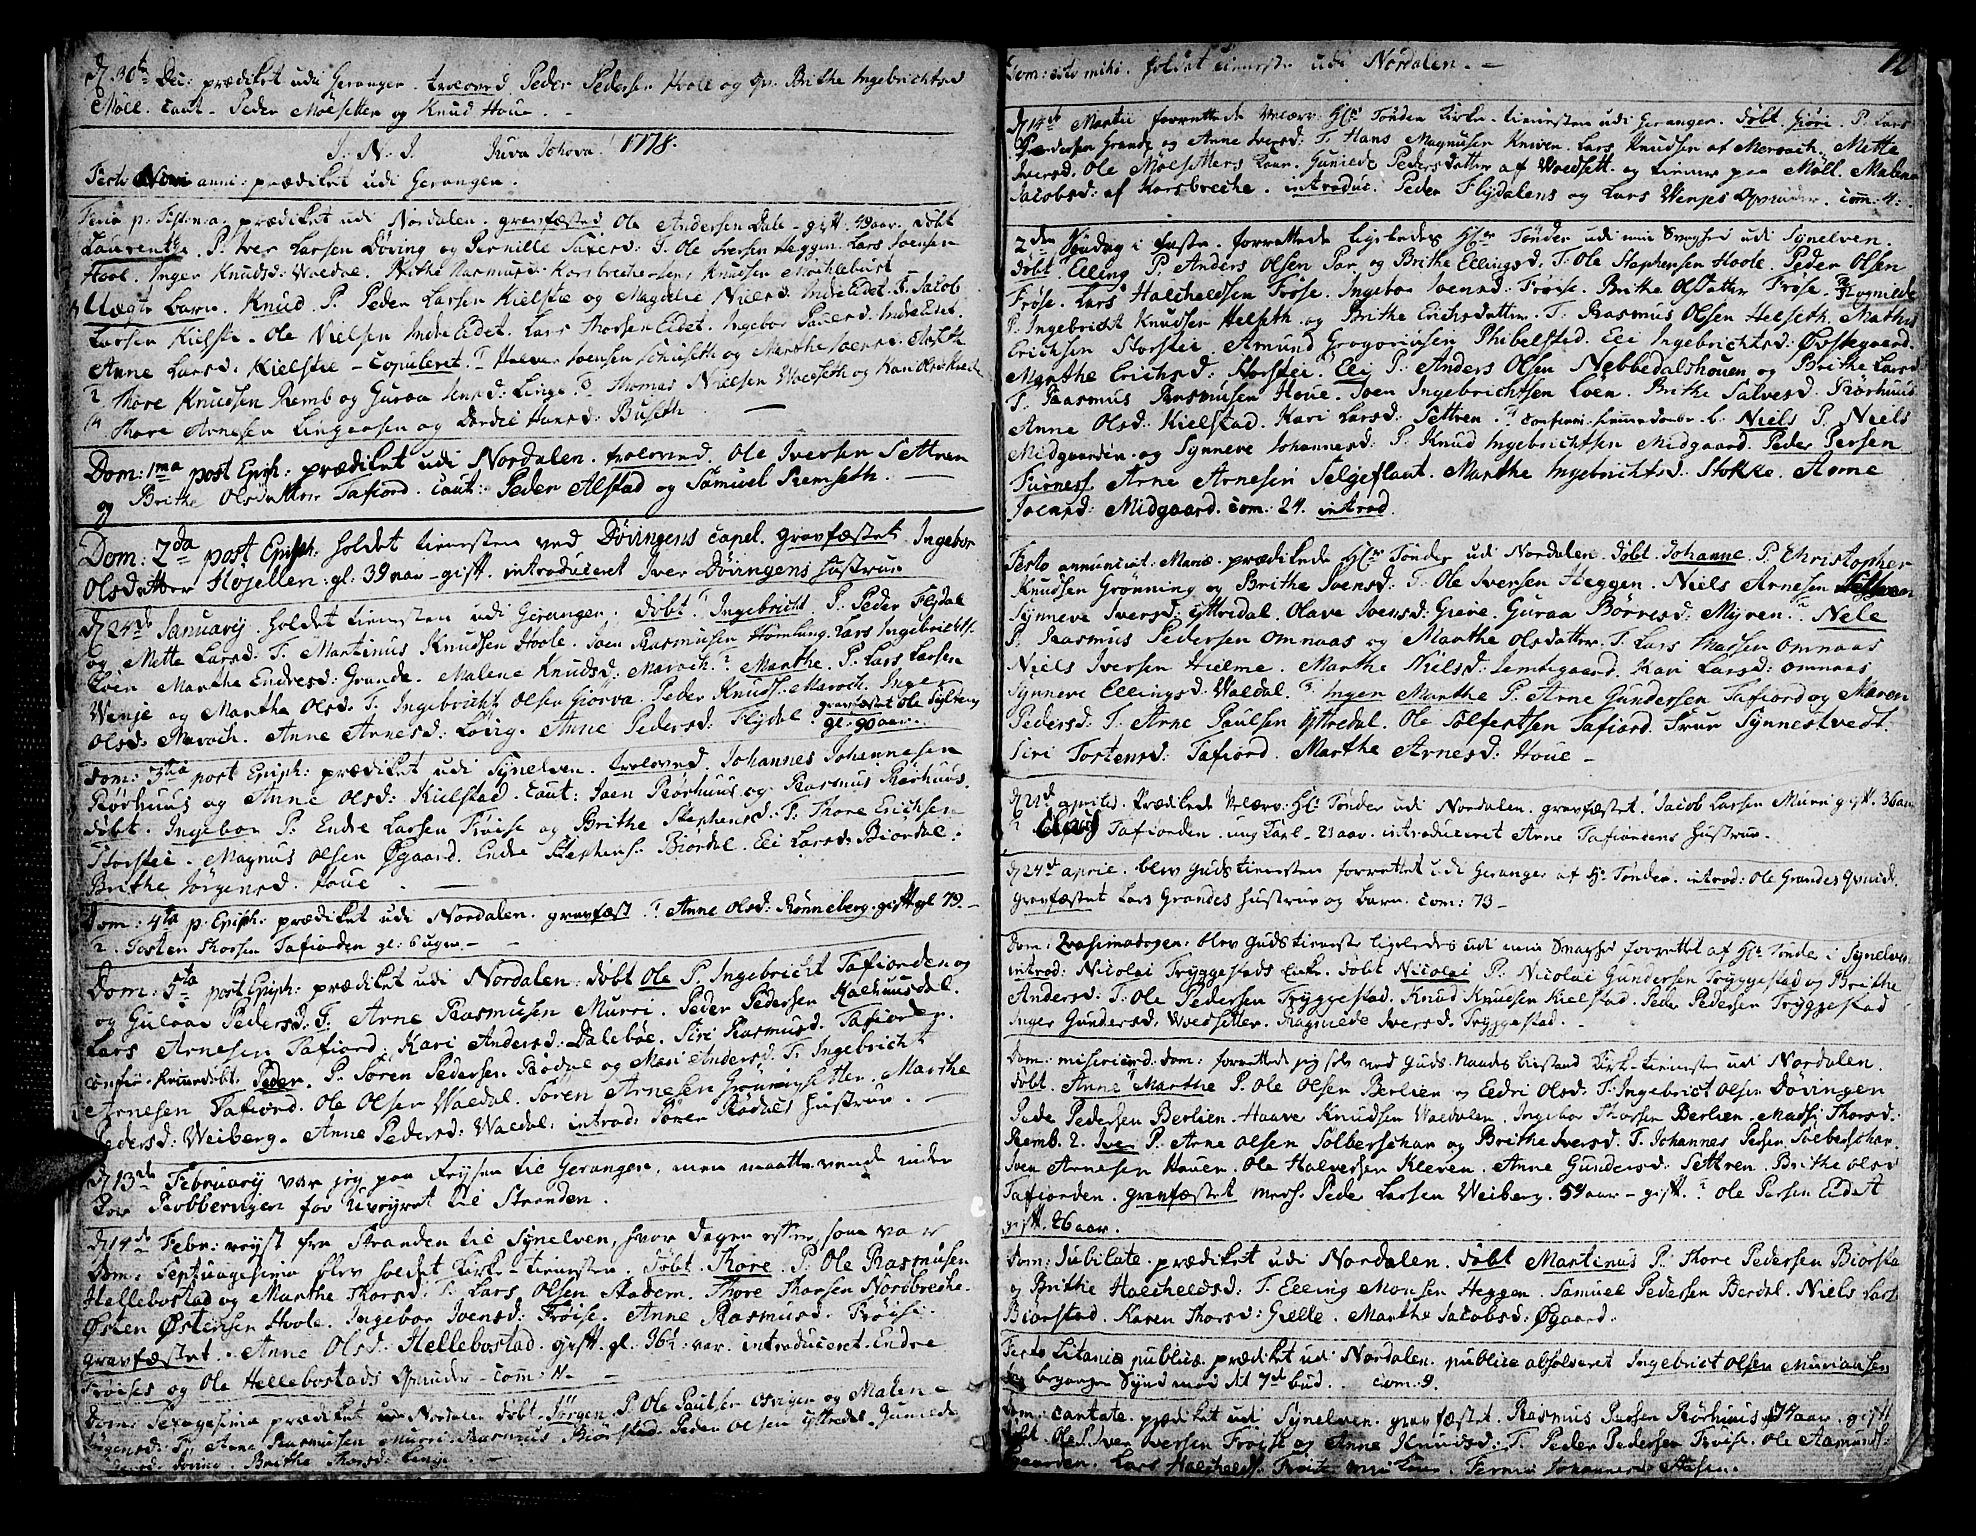 d 30te Dec: prædiket udi Geranger. troloved Peder Pedersen Holl og Qv. Brithe Ingebrichtsd
Möll. caut. Peder Möesetter og Knud Houe.
J. N. J. Juva Jehova! 1778.
Festo Novi anni: prædiket udi Geranger.
Feria p. Fest. n. a. prædiket udi Nordalen. gravfæsted. Ole Andersen Dale - gift. 49 aar. Döbt
Laurenthe. P. Iver Larsen Döving og Pernille T. Ole Iversen Heggen. Lars Joensen
Hool. Inger Knudsd: Waldal. Brithe Rasmusd: Korsbrech Knudsen Möchlebust
Uægte barn. Knud. P. Peder Larsen Kielstæ og Magdele Nielsd. Indre Eidet. T. Jacob
Larsen Kielstæ. Ole Nielsen Indre Eidet. Lars Thorsen Eidet. Ingebor Indre Eidet.
Anne Larsd. Kielstæ - Copuleret. 1 Halver Joensen og Marthe Joensd:
2 Thore Knudsen Remb og Guraa Linge. 3 Thomas Nielsen Waldseth og Kari Olsd
4 Thore Arnesen Lingeosen og Dordie Hansd: Buseth.
Dom: 1ma post Epiph: prædiket udi Nordalen. trolovad. Ole Iversen Settren
og Brithe Olsdatter Tafiord. Caut: Peder Alstad og Samuel Remseth.
Dom: 2da post Epiph. holdet tienesten ved Dövingens Capel. gravfæstet Ingebor
Olsdatter Hösellen: gl. 39 aar - gift. introduceret Iver Dövingens Hustrue
d 24de Januarij. holdet tienesten udi Geranger. döbt 1 Ingebricht. P. Peder Flydal
og Mette Larsd: T. Martinus Knudsen Hoole. Joen Rasmusen Homlung. Lars Ingebrichts.
Eden Marthe Endresd: Grande. Malene Knudsd: Maroch. 2 Marthe. P. Lars Larsen
Wenje og Marthe Olsd: T. Ingebricht Olsen Giörva. Peder Knuds: Maroch. Inger
Olsd: Maroch. Anne Arnesd: Lövig. Anne Pedersd: Flydal gravfæstet Ole Sylten
gl. 90 aar.
Dom: 3tia post Epiph: prædiket udi Synelven. trolovad. Johannes Johannesen
Rörhuus og Anne Olsd: Kielstad. Caut: Joen Rörhuus og Rasmus Rörhuus.
döbt. Ingebor P: Endre Larsen Fröise og Brithe Stephensd: T: Thore Erichsen
Storstei. Magnus Olsen Øgaard. Endre Stephens. Biördal. Eli Larsd: Biördal.
Brithe Jörgensd. Houe
Dom: 4ta p. Epiph: prædiket udi Nordalen. gravfæst 1 Anne Olsd: Rönneberg. gift gl 79.
2. Tosten Thorsen Tafiorden gl: 6 uger.
Dom: 5ta post Epiph: prædiket udi Nordalen: döbt Ole P. Ingebricht Tafiorden og
og Gulaae Pedersd: T. Arne Rasmusen Murri. Peder Pedersen Kalhuusdal.
Lars Arnesen Tafiord. Kari Andersd: Daleböe. Siri Rasmusd. Tafiorden.
confir. hiemedöbt. Peder. P. Sören Pedersen Rödal og Mari Andersd: T. Ingebricht
Arnesen Tafiord. Ole Olsen Waldal. Sören Arnesen Grönningsetter. Marthe
Pedersd: Weiberg. Anne Pedersd: Waldal: introd: Sören Rödals Hustrue.
d 13de Februarij var jeg paa Reysen til Geranger, men maatte vende under
Robberigen for Uveyret til Stranden.
d 14de Febr: reyst fra Stranden til Synelven, hvor dagen efter, som var
Dom: Septuagesima blev holdet Kirke-tienesten. Döbt. Thore. P. Ole Rasmusen
Hellebostad og Marthe Thorsd: T. Lars Olsen Stadem. Thore Thorsen Nordbreche.
Østen Østensen Hoole. Ingebor Ivensd: Fröise. Anne Rasmusd. Fröise.
gravfæstet. Anne Olsd. Hellebostad. gift. gl. 36½ aar. introduceret. Endre
Fröises og Ole Hellebostads Qvinder - com: 11.
Dom: Sexagesima prædiket udi Nordalen döbt. Jörgen. P. Ole Paulsen Osvigen og Malene
Jörgensd: T. Arne Rasmusen Murri. Rasmus Biörstad. Peder Olsen Yttredal. Gunilde
Brithe Thorsd: Linge.
12
Dom: esto mihi. holdet tieneste udi Nordalen.
d 14de Martii forrettede Velærv: Hr Tönder Kirke-tienesten udi Geranger. Döbt Giöri. P. Lars
Pedersen Grande og Anne Iversd: T. Hans Magnusen Kniven. Lars Knudsen af Meroch. Mette
Iversd. Ole Moesetters Kone. Gunilde Pedersdatter af Woldsett. og tiener paa Möll. Malene
Jacobsd: af Korsbreche. introduc. Peder Flydalens og Lars Wenjes Qvinder. com: 4.
2den Söndag i Faste. forrettede ligeledes Hr Tönder udi min Svaghed udi Synelven.
Döbt Elling P. Anders Olsen Par. og Brithe Ellingsd. T. Ole Stephensen Hoole. Peder Olsen
Fröse. Lars Halcheldsen Fröse. Ingebor Joensd: Fröise. Brithe Olsdatter Fröse. 2 Rognilde
P. Ingebricht Knudsen Helseth og Brithe Erichsdatter. T. Rasmus Olsen Helseth. Mathis
Erichsen Storstei. Amund Gregoriusen Phibelstad. Eli Ingebrichtsd: Øvstegaard.
Marthe Erichsd: Storstei. Eli P. Anders Olsen Nebbedalshouen og Brithe Larsd:
T. Rasmus Rasmusen Houe. Iven Ingebrichtsen Löen. Brithe Salvesd: Rörhuus
Anne Olsd: Kielstad. Kari Larsd: Settren. confirm: hiemedöbe b. Niels P. Niels
Midgaarden og Synneve Johannesd: P. Knud Ingebrichtsen Midgaard. Peder Persen
Furnes. Arne Arnesen Selgeflaut. Marthe Ingebrichtsd: Stokke. Anne
Joensd: Midgaard. com: 24. introd.
Festo annunciat: Mariæ prædikede Hr Tönder udi Nordalen. Döbt Johanne P. Christopher
Knudsen Grönning og Brithe Joensd: T. Ole Iversen Heggen. Niels Arnesen
Synneve Iversd: Yttredal. Olave Joensd: Greve. Guraa Börresd: Myren. 2 Nele
P. Rasmus Pedersen Omnaas og Marthe Olsdatter. T. Lars Madsen Omnaas
Niels Iversen Hielme. Marthe Nielsd: Lemtegaard. Kari Larsd: Omnaas
Synneve Ellingsd: Waldal. 3 Ingen Marthe P. Arne Gundersen Tafiord og Maren
Pedersd: T. Arne Paulsen Yttredal. Ole Solfestsen Tafiord. Svur Synnestvedt.
Siri Tostensd: Tafiord. Marthe Arnesd: Houe.
d 21de aprilis. Prædikede Velærv: Hr: Tönder udi Nordalen. gravfæstet. 1 Jacob Larsen Murri gift. 36 aar
2 Tafiorden. ung Karl - 21 aar. introduceret Arne Tafiordens Hustrue.
d 24de april. blev Guds tienesten forrettet udi Geranger af Hr Tönder. introd: Ole Grandes Qvinde.
Gravfæstet Lars Grandes Hustrue og barn. com: 73
Dom: Qvasimodogen: blev Guds tieneste ligeledes udi min Svaghed forrettet af Hr Tönder i Synelven.
introd: Nicolai Tryggestads Enke. Döbt Nicolai P. Nicolai Gundersen Tryggestad og Brithe
Andersd: T. Ole Pedersen Tryggestad. Knud Knudsen Kielstad. Peder Pedersen Tryggestad
Inger Gundersd. Woldsetter. Ragnilde Iversd. Tryggestad.
Dom: misericord: dom: forrettede jeg selv ved Guds Naades bistand Kirk-tienesten udi Nordalen.
Döbt. Anne Marthe P. Ole Olsen Berlien og Eldri Olsd. T: Ingebrict Olsen Dövingen
Peder Pedersen Berlien. Haave Knudsen Waldalen. Ingebor Thorsd: Berlien. Thorsd:
Remb. 2. Iver P. Arne Olsen Solberschar og Brithe Iversd. T. Johannes Persen Solberschar.
Iven Arnesen Houen. Ole Halversen Kleven. Anne Gundersd: Settren. Brithe Olsd
Tafiorden. gravfæstet Peder Larsen Weiberg. 59 aar - gift. 2 Ole Persen Eidet
gift. 26 aar.
Dom: Jubilate. prædiket udi Nordalen. Döbt Martinus P: Thore Pedersen Biörsta
og Brithe Halcheldsd: T. Elling Monsen Heggen. Samuel Pedersen Berdal. Niels Lars
Biörstad. Karen Thorsd: Gielle. Marthe Jacobsd: Øgaard.
Festo Litaniæ publicæ. prædiket udi Nordalen. publice absolveret Ingebrict Olsen
begangen Synd mod det 7de bud. com: 9.
Dom: cantate. prædiket udi Synelven. gravfæstet. Rasmus Larsen Rörhuus 74 aar. gift
Döbt. Ole P. Iver Iversen Fröise og Anne Knudsd: T. Peder Pedersen Fröise. Ole Aamunds:
gaarden. Lars Halchelds. Fröise Johannesd.